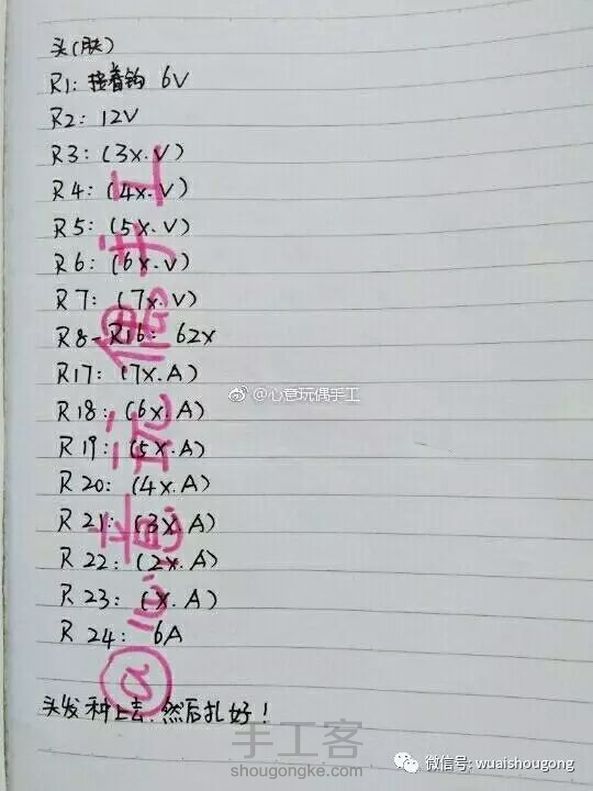 头(肤)
R1: 接着钩 6V
R2: 12V
R3: (3X.V)
R4: (4X.V)
R5: (5X.V)
R6: (6X.V)
R7: (7X.V)
R8-R16: 62X
R17: (7X.A)
R18: (6X.A)
R19: (5X.A)
R20: (4X.A)
R21: (3X.A)
R22: (2X.A)
R23: (X.A)
R24: 6A
头发种上去.然后扎好!
@心意玩偶手工
@心意玩偶手工
手工客
shougongke.com
微信号: wuaishougong